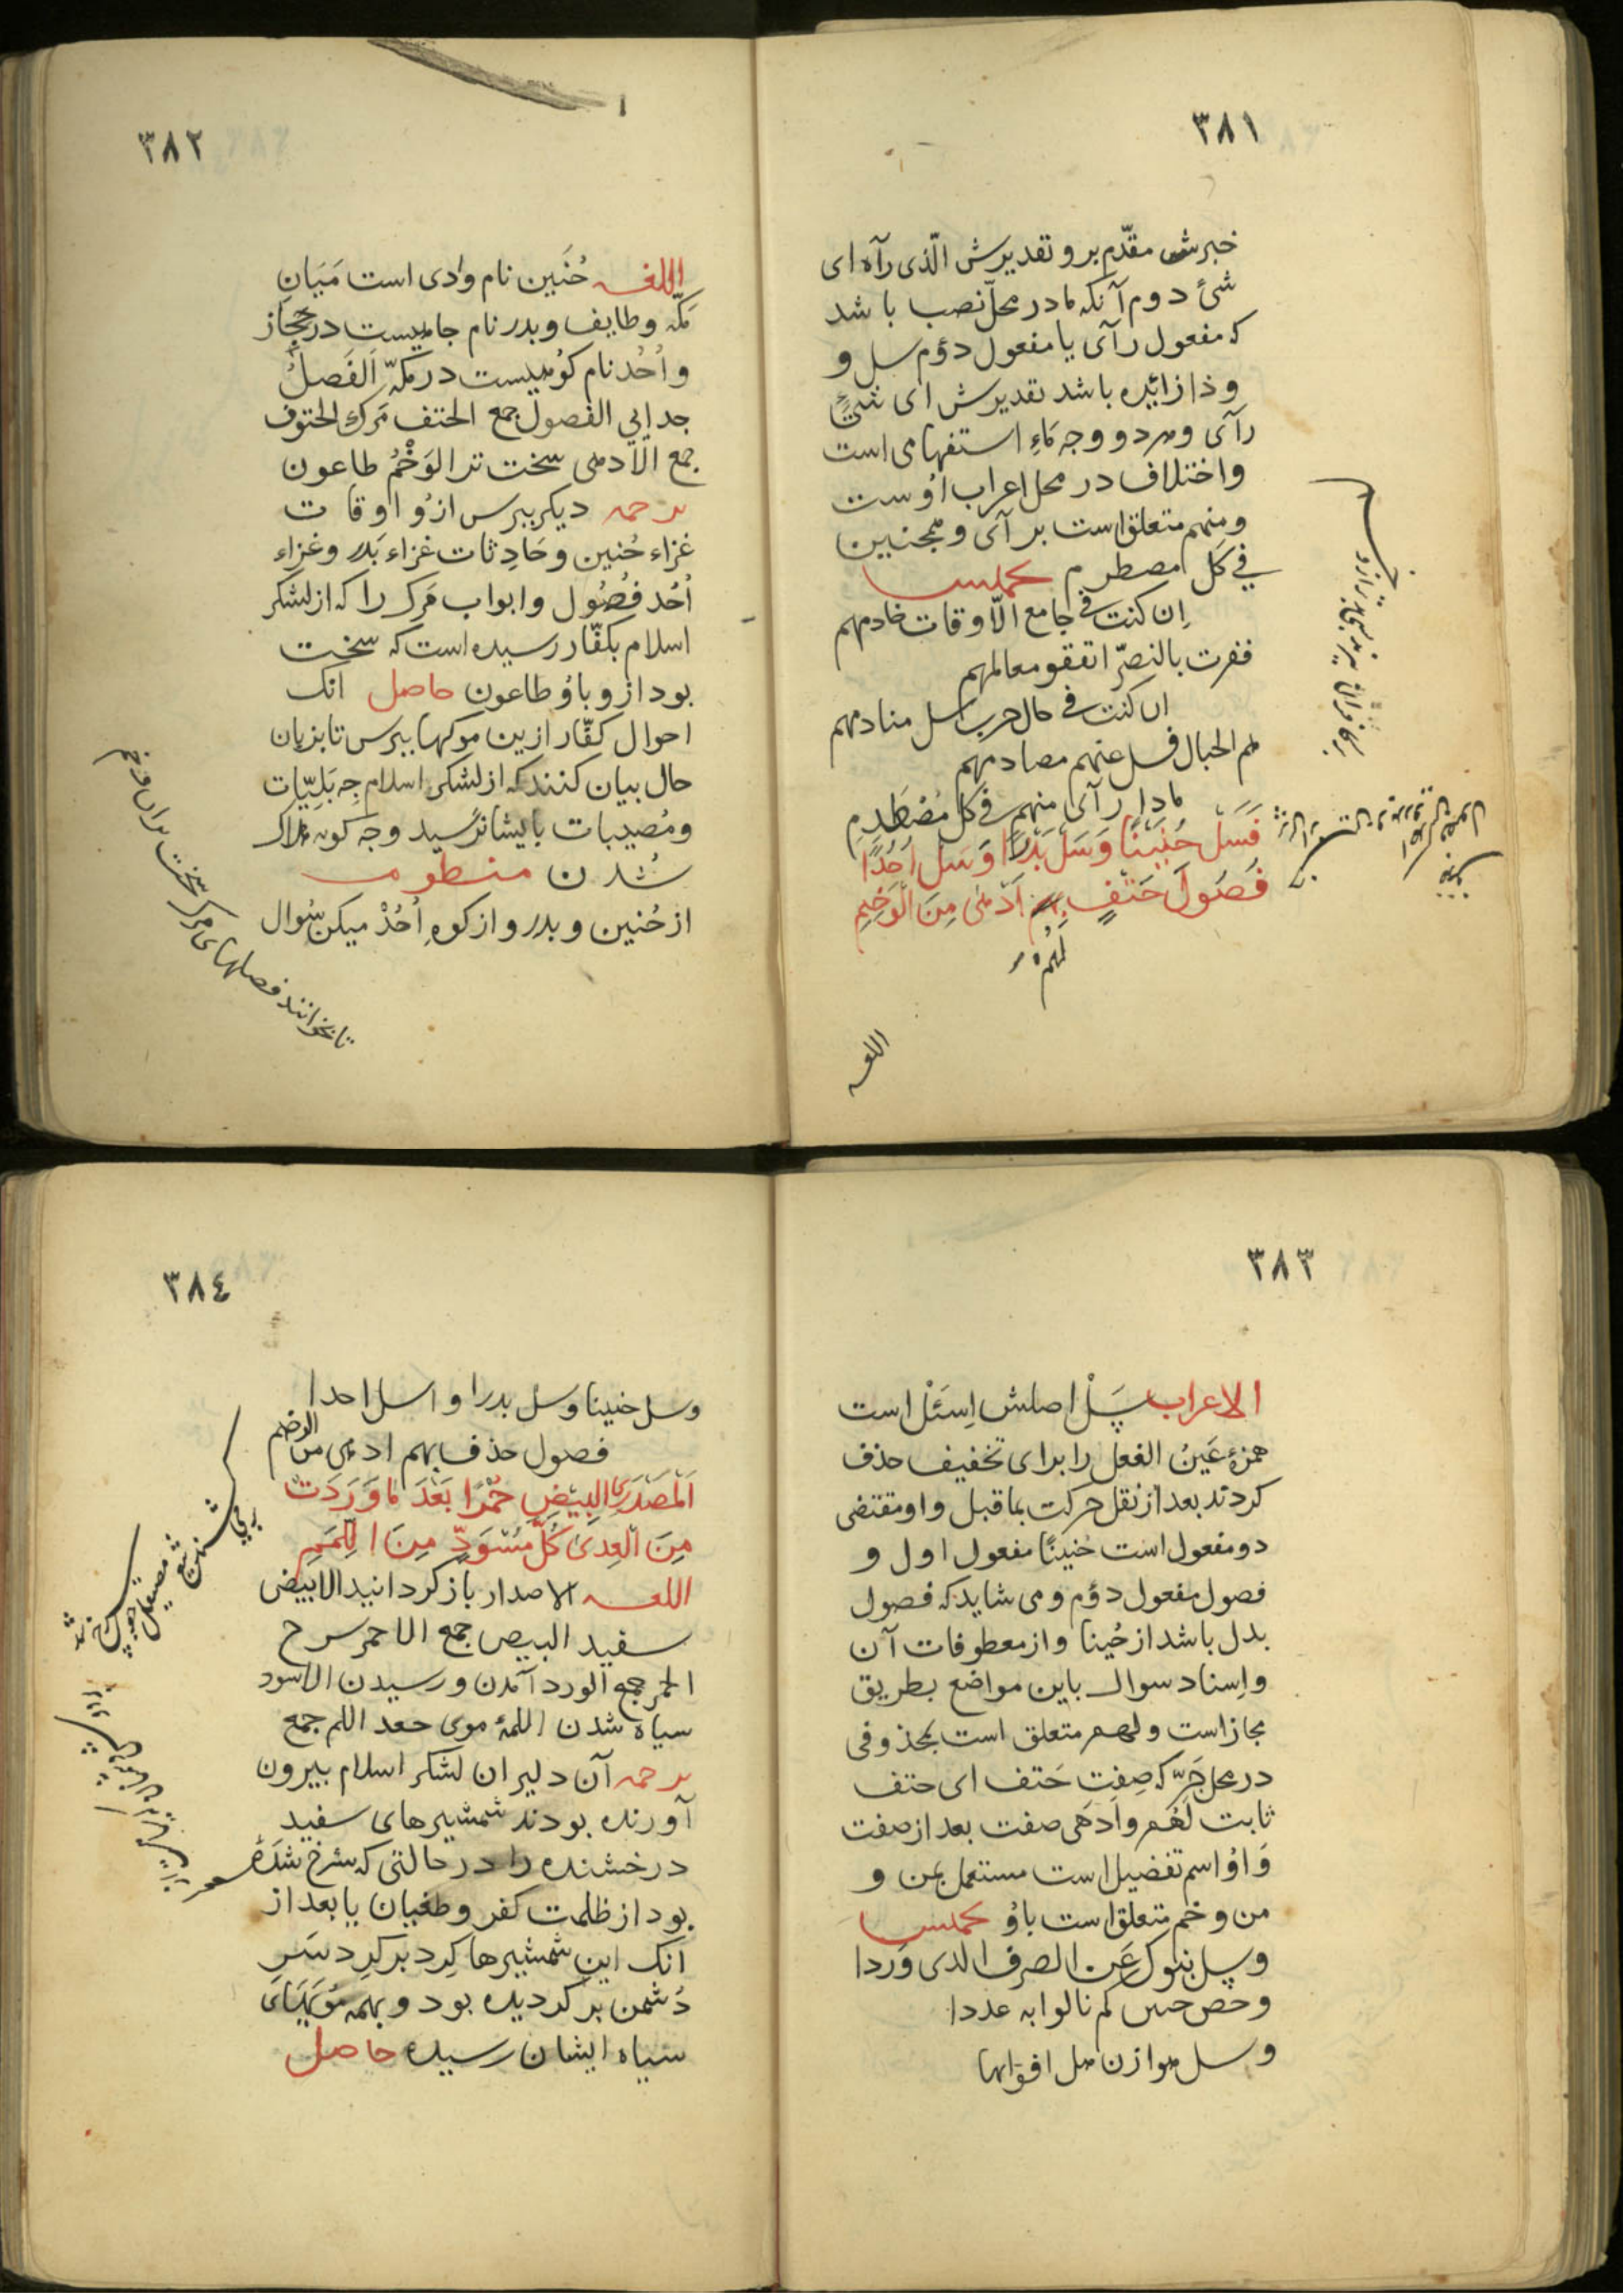 ٣٨١
خبرش مقدّم بر و تقدیرش الّذی رآه ای
شئ دوم آنکه ما در محلّ نصب باشد
که مفعول رآی یا مفعول دوّم سل و
و ذا زائیده باشد تقدیرش ای شئٍ
رآی و هردو وجه ماءِ استفهامی است
و اختلاف در محل اعراب اوُست
و منهم متعلق است بر آی و همجنین
فی کل مصطرم
اِن کنت فی جامع الّاوقات خادمهم
ففرت بالنصرّ اتفقو معالمهم
ان کنت فی حال حرب اسل منادمهم
هم الجبال فسل عنهم مصادمهم
ماذا رآی منهم فی کل مُصْطَدِمِ
فَسَلْ حُنَیْنًا وَسَلْ بَدْرًا وَسَلْ اُحُدًا
فُصُولَ حَتْفٍ اَدْهٰی مِنَ الْوَخَمِ
لَهُمْ
اللغه
٣٨٢
اللغه حُنَین نام وٰادی است مَیَانِ
مَکّه و طایف و بدر نام جائیست در حجاز
و اُحُد نام کوُهیست در مَکّه اَلفَصلُ
جدایی الفصول جمع الحتف مَرک الحتوف
جمع الادهی سخت تر الوَخْمُ طاعون
ترجمه دیکر بپرس از وُ اوقات
غزاء حُنین و حَادِثات غزاء بَدر و غزاء
اُحُد فُصُول و ابواب مَرک را که از لشکر
اسلام بکفّار رسیده است که سخت
بود از وباوُ طاعون حاصل انک
احوال کفّار ازین موکها بپرس تا بزبان
حال بیان کنند که از لشکر اسلام چِه بَلیّیات
و مُصیبات بایشان رَسید و چه کونه هلاک
شُدن منظومه
از حُنین و بدر و از کوهِ اُحُدْ میکن سُوال
تا بخوانند فصلهای مرک سخت تر از وخم
٣٨٣
الاعراب سَلْ اصلش اِسئَلْ است
همزهٔ عَینُ الفعل را برای تخفیف حذف
کردند بعد از نقل حرکت بماقبل و او مقتضی
دو مفعول است حُنینًا مفعول اول و
فصول مفعول دوّم و می شاید که فصول
بدل باشد از حُینا و از معطوفات آن
و اِسناد سوال باین مواضع بطریق
مجاز است و لهم متعلق است بمحذوفی
در محل جَرّ که صِفتِ حَتف ای حتف
ثابت لَهُم و اَدهَی صفت بعد از صفت
وَ اوُ اسم تفضیل است مستعمل بمن و
من وخم متعلق است باوُ
وسل بنوک عَن الصرف الذی وَردا
و خص حنین کم نالوا به عددا
وسل هوازن هل اقوالها
٣٨٤
وسل حنینا وسل بدرا و اسل احدا
فصول حذف بهم ادهی من الوخم
اَلْمُصْدِرِی الْبِیْضِ حُمْرًا بَعْدَ مَا وَرَدَتْ
مِنَ الْعِدٰی کُلَّ مُسْوَدٍّ مِنَ اللِّمَمِ
اللغه الاصدار باز کردانید الابیض
سفید البیض جمع الاحمر سرح
الحمر جمع الورد آمدن و رسیدن الاسود
سیاه شدن اللمهٔ موی جعد اللم جمع
ترجمه آن دلیران لشکر اسلام بیرون
آورنده بودند شمشیرهای سفید
درخشنده را در حالتی که سُرخ شدَهٔ
بود از ظلمت کفر و طغیان یا بعد از
انک این شمشیرها کِرد بر کِرد سَرِ
دُشمن بر کردیده بود و بهمه مُویهَای
سیاه ایشان رسیده حاصل